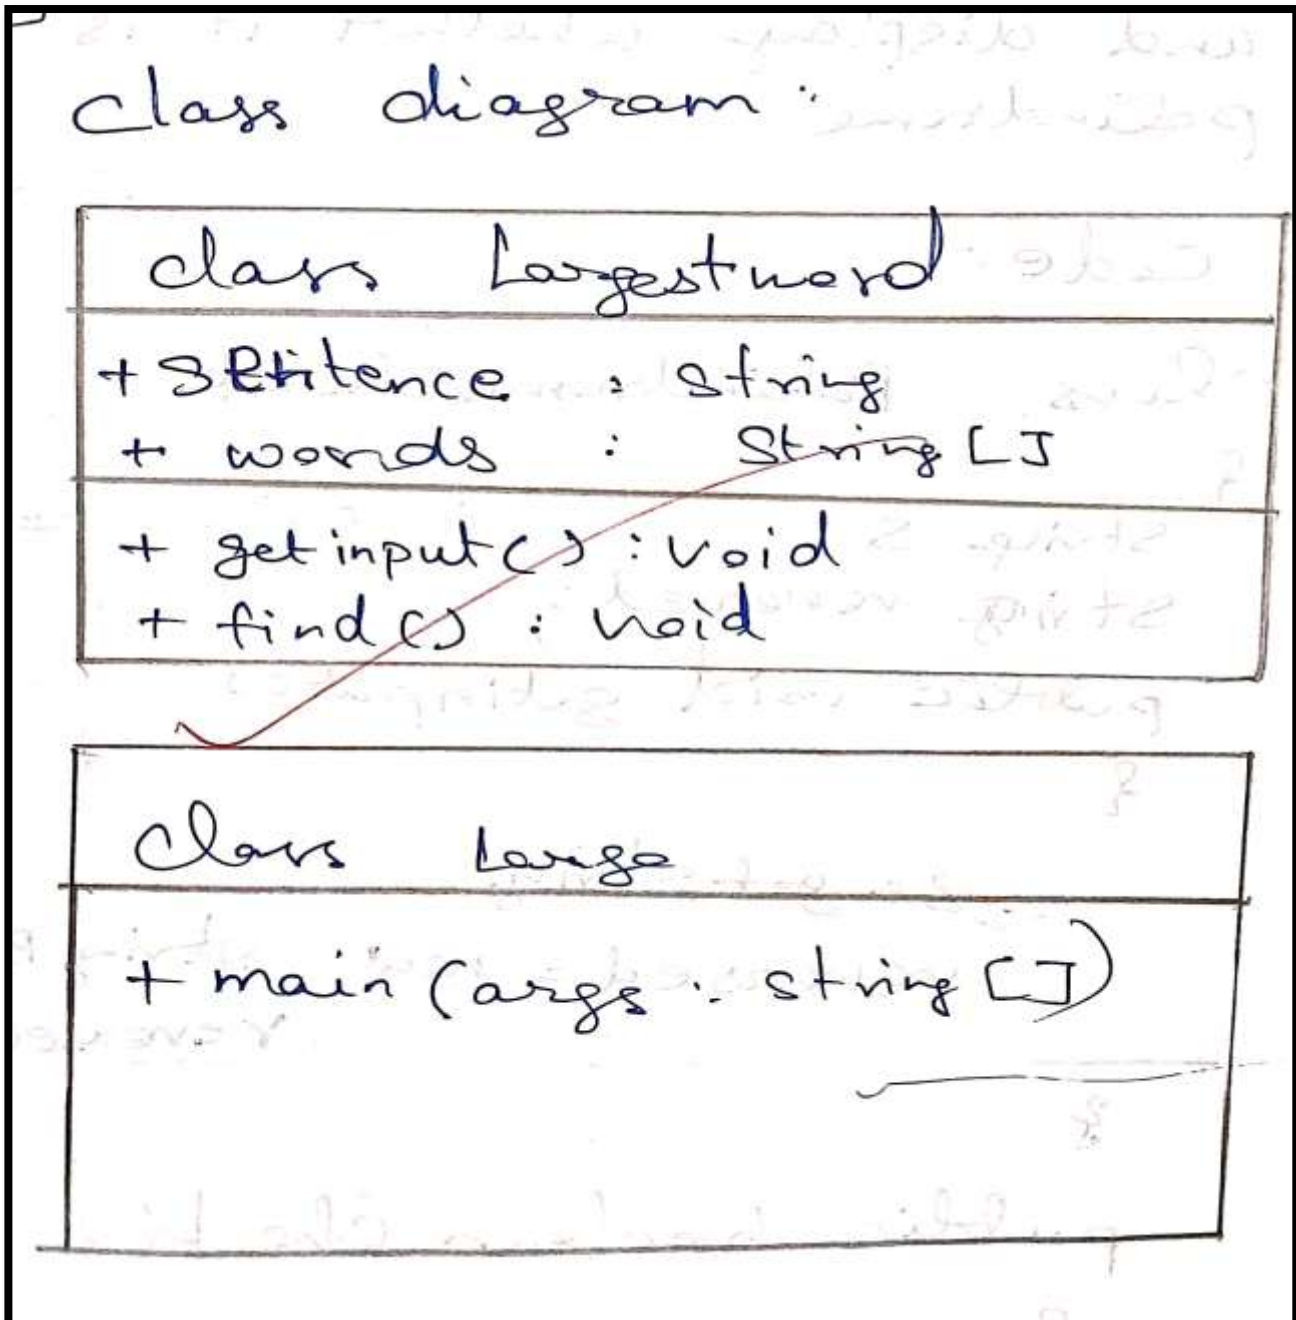 class diagram:
class Largestword
+ Sentence : string
+ words : String []
+ getinput() : void
+ find() : void
class Large
+ main (args : string [])